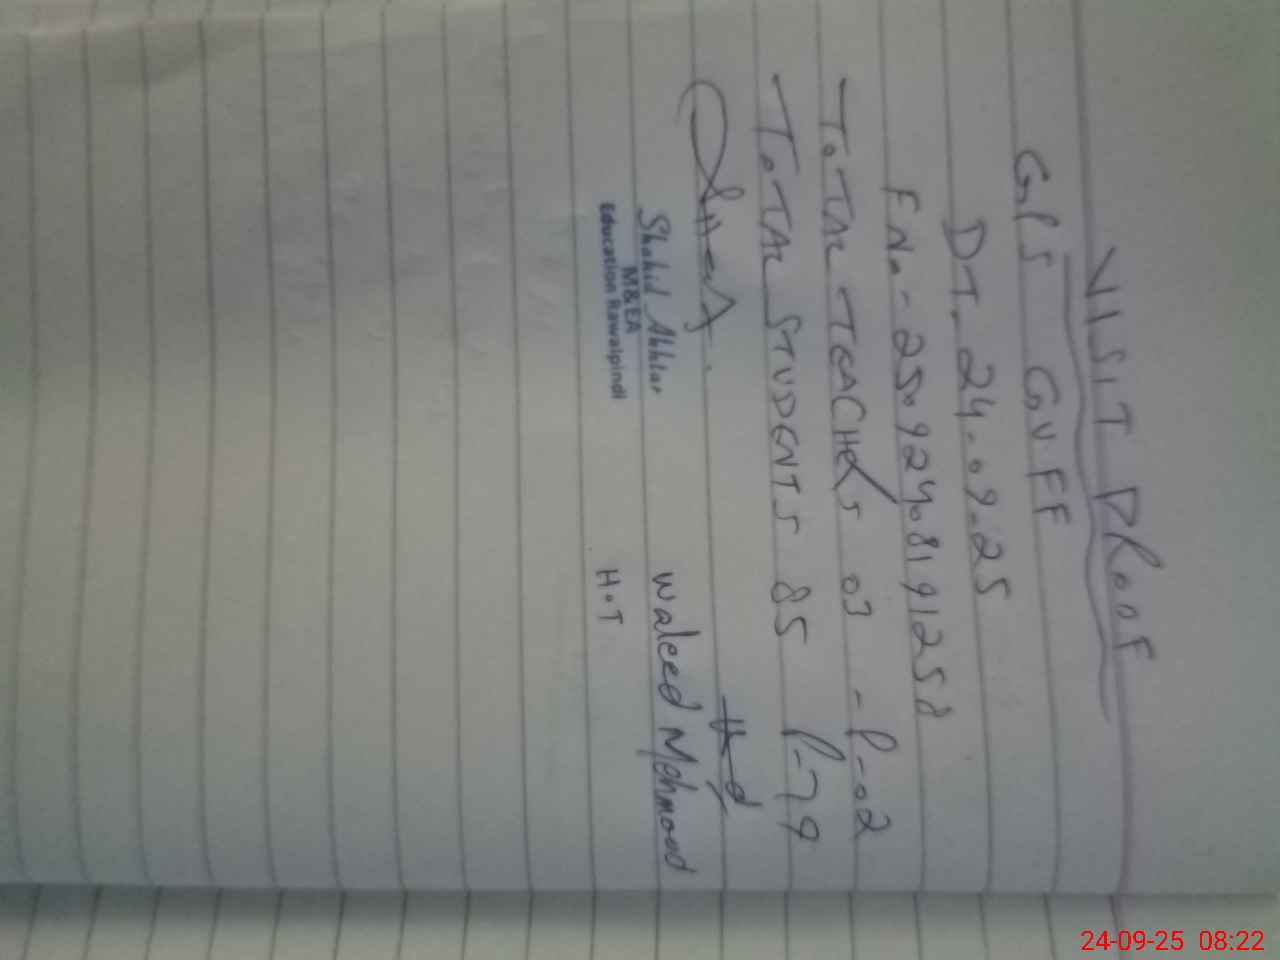 VISIT PROOF
GPS GUFF
DT. 24-09-25
FN.- 25092408191258
TOTAL TEACHERS 03 - P-02
TOTAL STUDENTS 85 P-79
Shahid Akhtar
M&EA
Education Rawalpindi
Waleed Mehmood
H.T
24-09-25 08:22